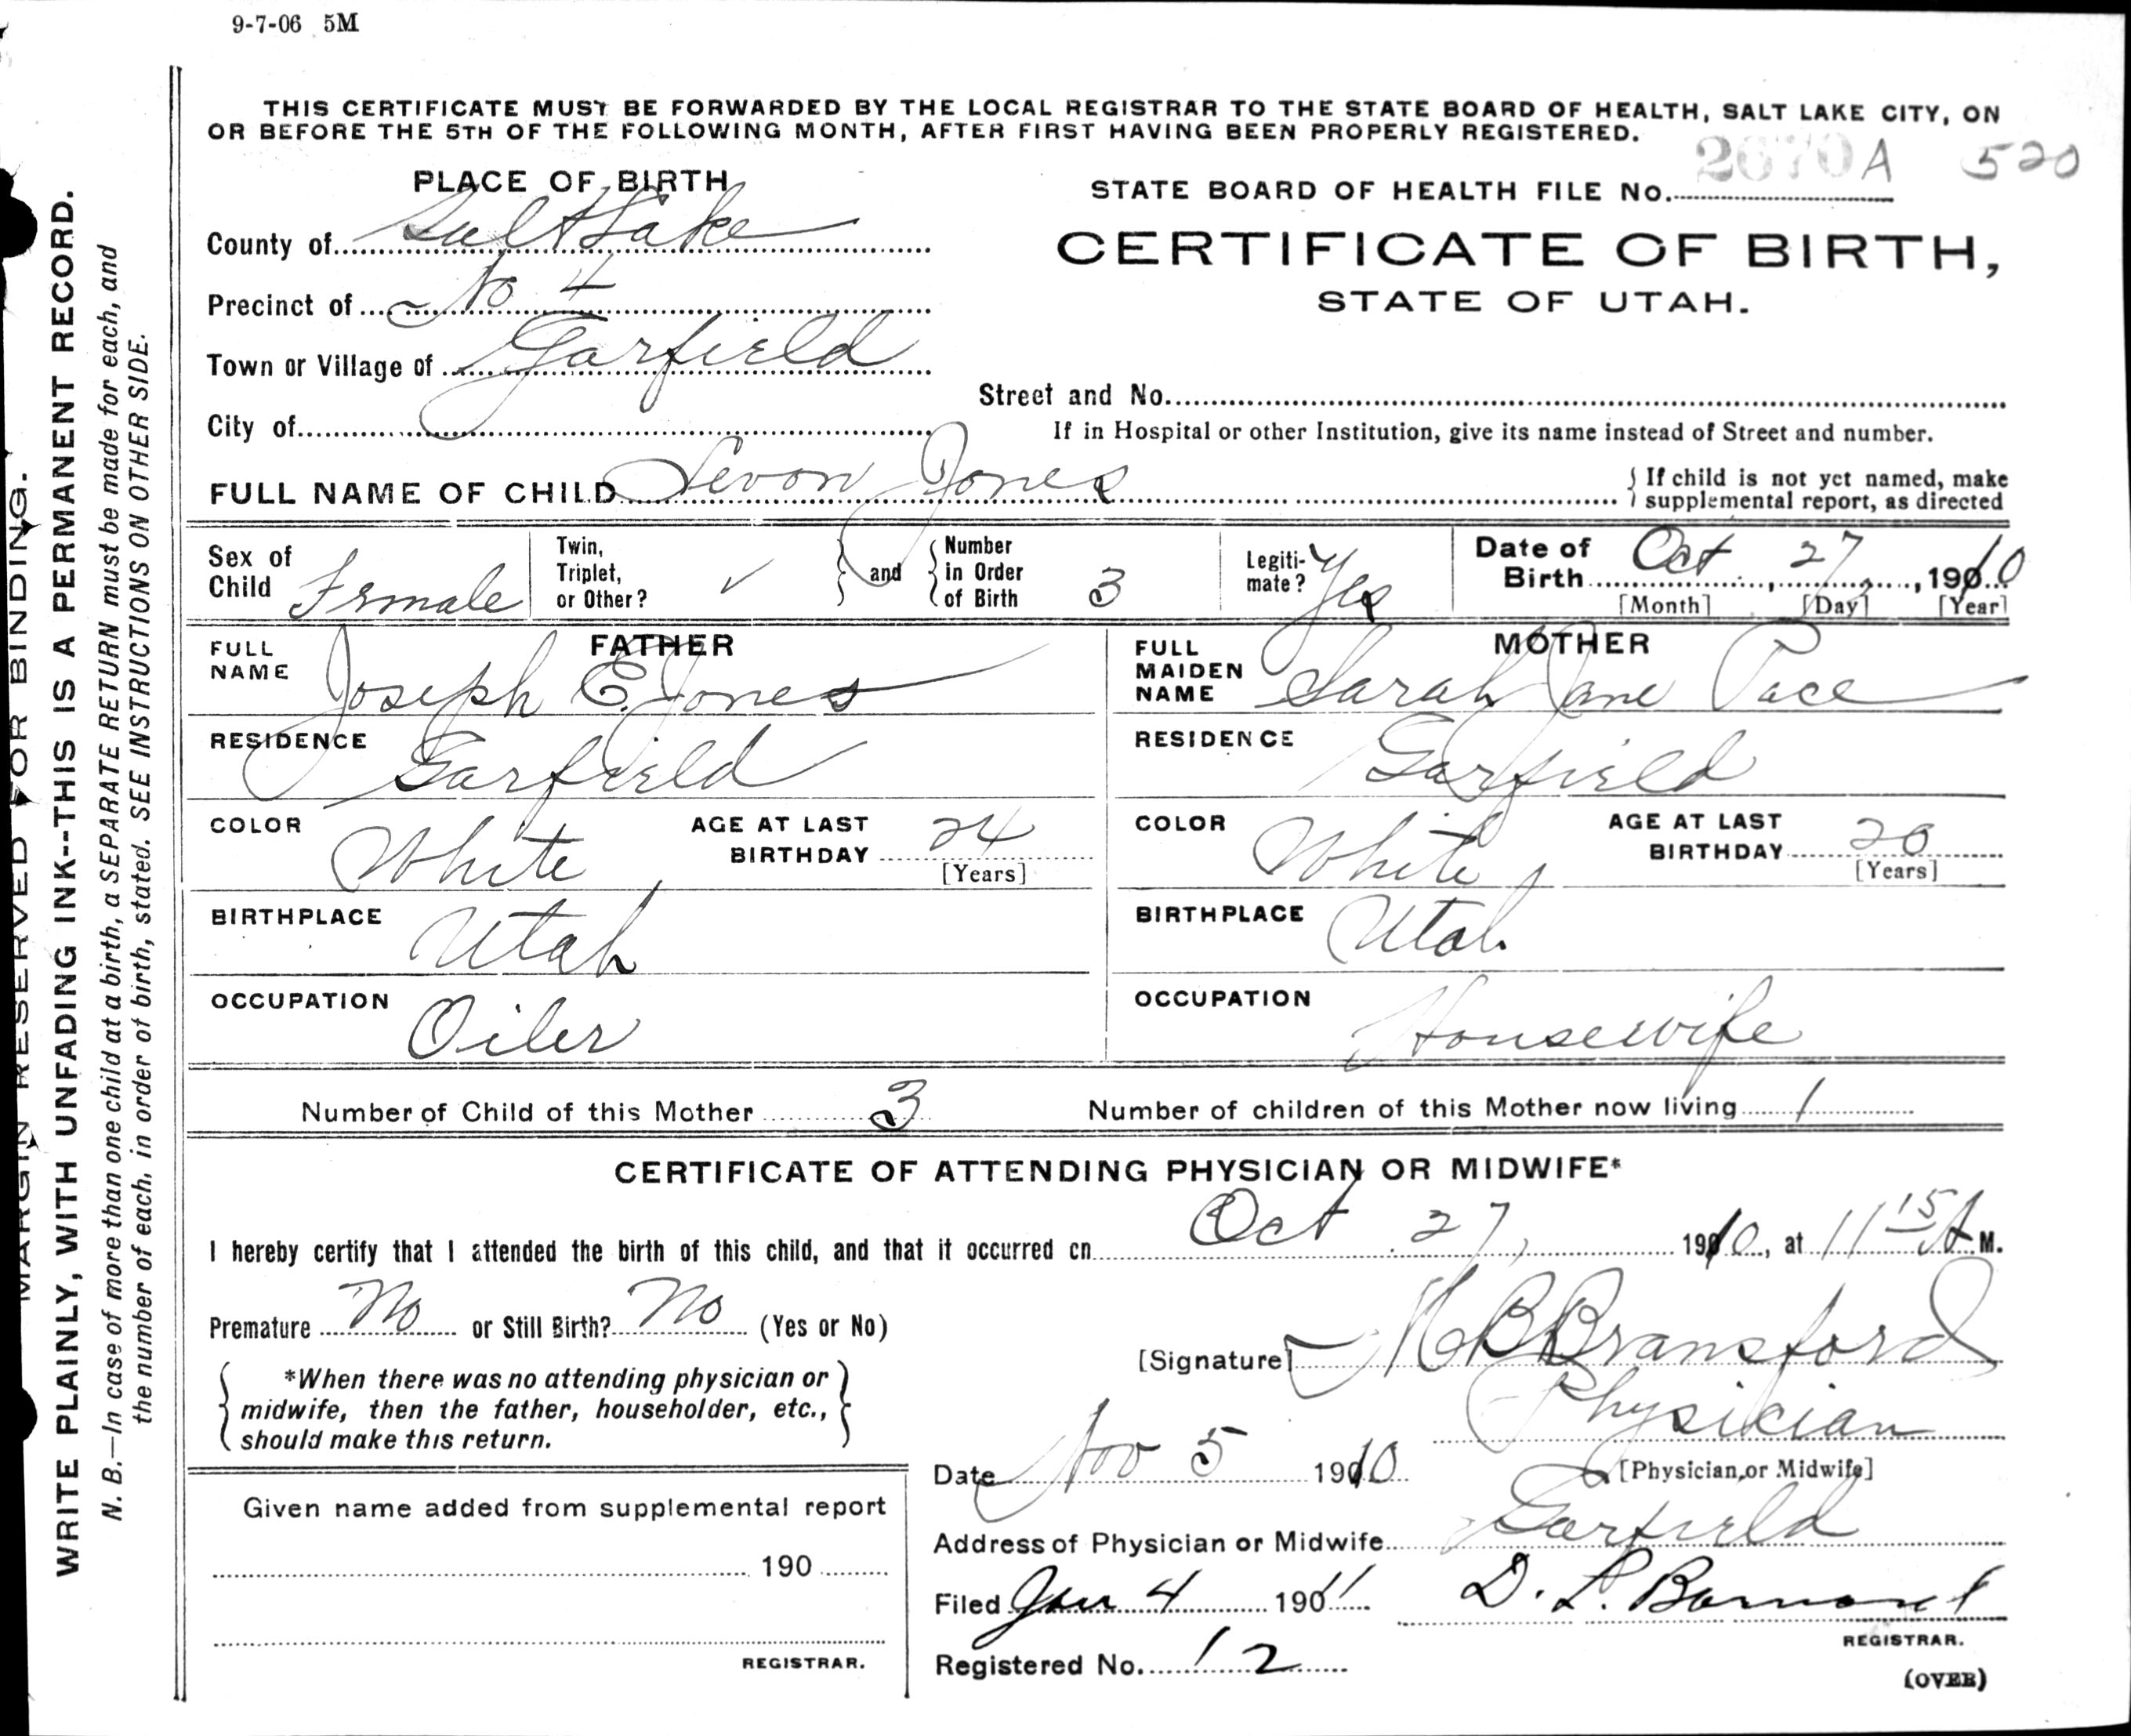 9-7-06 5M
THIS CERTIFICATE MUST BE FORWARDED BY THE LOCAL REGISTRAR TO THE STATE BOARD OF HEALTH, SALT LAKE CITY, ON
OR BEFORE THE 5TH OF THE FOLLOWING MONTH, AFTER FIRST HAVING BEEN PROPERLY REGISTERED.
2670 A 520
STATE BOARD OF HEALTH FILE No.
PLACE OF BIRTH
County of Salt Lake
Precinct of No 4
Town or Village of Garfield
City of
CERTIFICATE OF BIRTH,
STATE OF UTAH.
Street and No.
If in Hospital or other Institution, give its name instead of Street and number.
FULL NAME OF CHILD Levon Jones
If child is not yet named, make
supplemental report, as directed
Sex of Child Female
Twin, Triplet, or Other? ✓
and
Number in Order of Birth 3
Legiti-mate? Yes
Date of Birth Oct 27, 1910
[Month] [Day] [Year]
FATHER
FULL NAME Joseph E. Jones
RESIDENCE Garfield
COLOR White AGE AT LAST BIRTHDAY 24
[Years]
BIRTHPLACE Utah
OCCUPATION Oiler
MOTHER
FULL MAIDEN NAME Sarah Jane Pace
RESIDENCE Garfield
COLOR White AGE AT LAST BIRTHDAY 20
[Years]
BIRTHPLACE Utah
OCCUPATION Housewife
Number of Child of this Mother 3 Number of children of this Mother now living 1
CERTIFICATE OF ATTENDING PHYSICIAN OR MIDWIFE*
I hereby certify that I attended the birth of this child, and that it occurred on Oct 27, 1910, at 11 15 A M.
Premature No or Still Birth? No (Yes or No)
*When there was no attending physician or
midwife, then the father, householder, etc.,
should make this return.
[Signature] Bransford
Physician
[Physician or Midwife]
Date Nov 5 1910
Address of Physician or Midwife Garfield
Filed Jan 4 1911 D. L. Barnard
REGISTRAR.
Registered No. 12
(OVER)
Given name added from supplemental report
190
REGISTRAR.
MARGIN RESERVED FOR BINDING.
WRITE PLAINLY, WITH UNFADING INK--THIS IS A PERMANENT RECORD.
N. B.—In case of more than one child at a birth, a SEPARATE RETURN must be made for each, and
the number of each, in order of birth, stated. SEE INSTRUCTIONS ON OTHER SIDE.